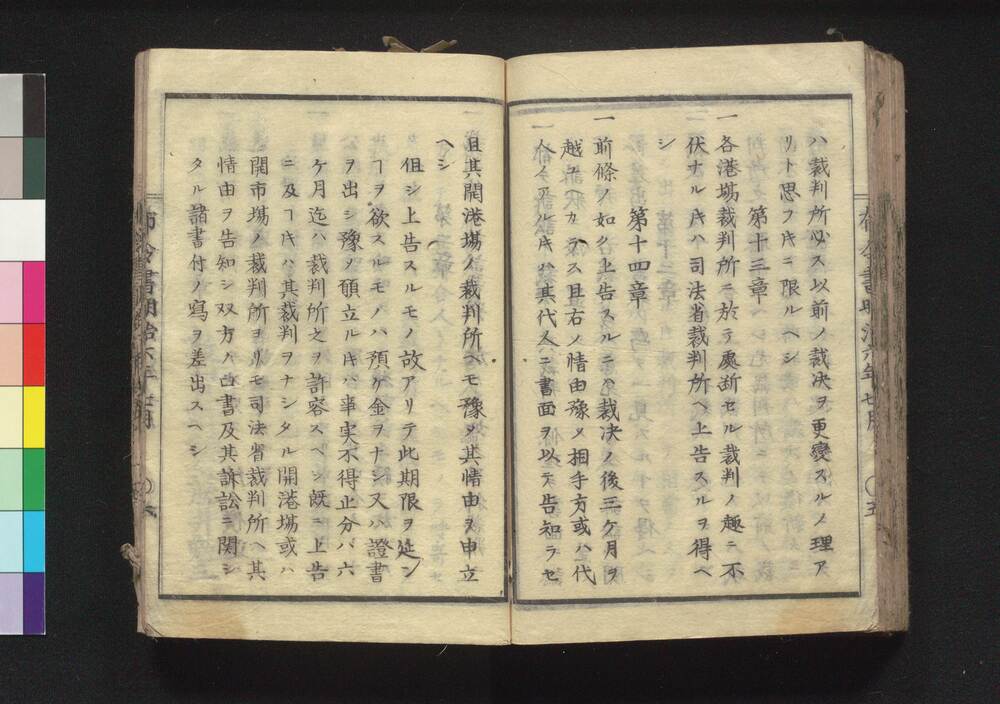 ハ裁判所必ス以前ノ裁决ヲ更變スルノ理ア
リト思フキニ限ルヘシ
第十三章
一各港場裁判所ニ於テ處断セル裁判ノ趣ニ不
伏ナルキハ司法省裁判所ヘ上告スルヲ得ヘ
シ
第十四章
一前條ノ如ク上告スルニハ裁决ノ後三ケ月ヲ
越ユヘカラス且右ノ情由豫メ相手方或ハ代
人アルキハ其代人ニ書面ヲ以テ告知ラセ
且其開港場ノ裁判所ヘモ豫メ其情由ヲ申立
ヘシ
但シ上告スルモノ故アリテ此期限ヲ延ン
ヿヲ欲スルモノハ預ケ金ヲナシ又ハ證書
ヲ出シ豫メ願立ルキハ事実不得止分ハ六
ケ月迄ハ裁判所之ヲ許容スヘシ既ニ上告
ニ及フキハ其裁判ヲナシタル開港場或ハ
開市場ノ裁判所ヨリモ司法省裁判所ヘ其
情由ヲ告知シ双方ハ口書及其訴訟ニ関シ
タル諸書付ノ寫ヲ差出スヘシ
布令書明治六年七月 〇五
布令書明治六年七月 〇六